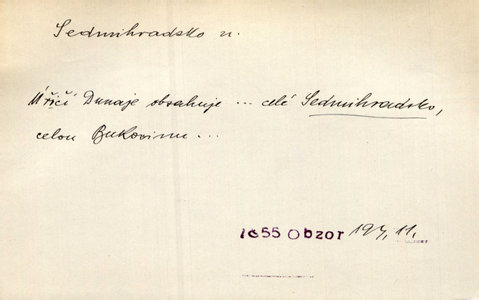 Sedmihradsko n.
Úřičí Dunaje obsahuje ... celé Sedmihradsko,
celou Bukovinu...
1855 Obzor 194, 11.